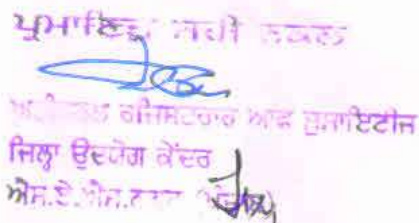 ਪ੍ਰਮਾਣਿਤ ਸਹੀ ਨਕਲ
ਰਜਿਸਟਰਾਰ ਆਫ ਸੁਸਾਇਟੀਜ
ਜਿਲ੍ਹਾ ਉਦਯੋਗ ਕੇਂਦਰ
ਐਸ.ਏ.ਐਸ.ਨਗਰ